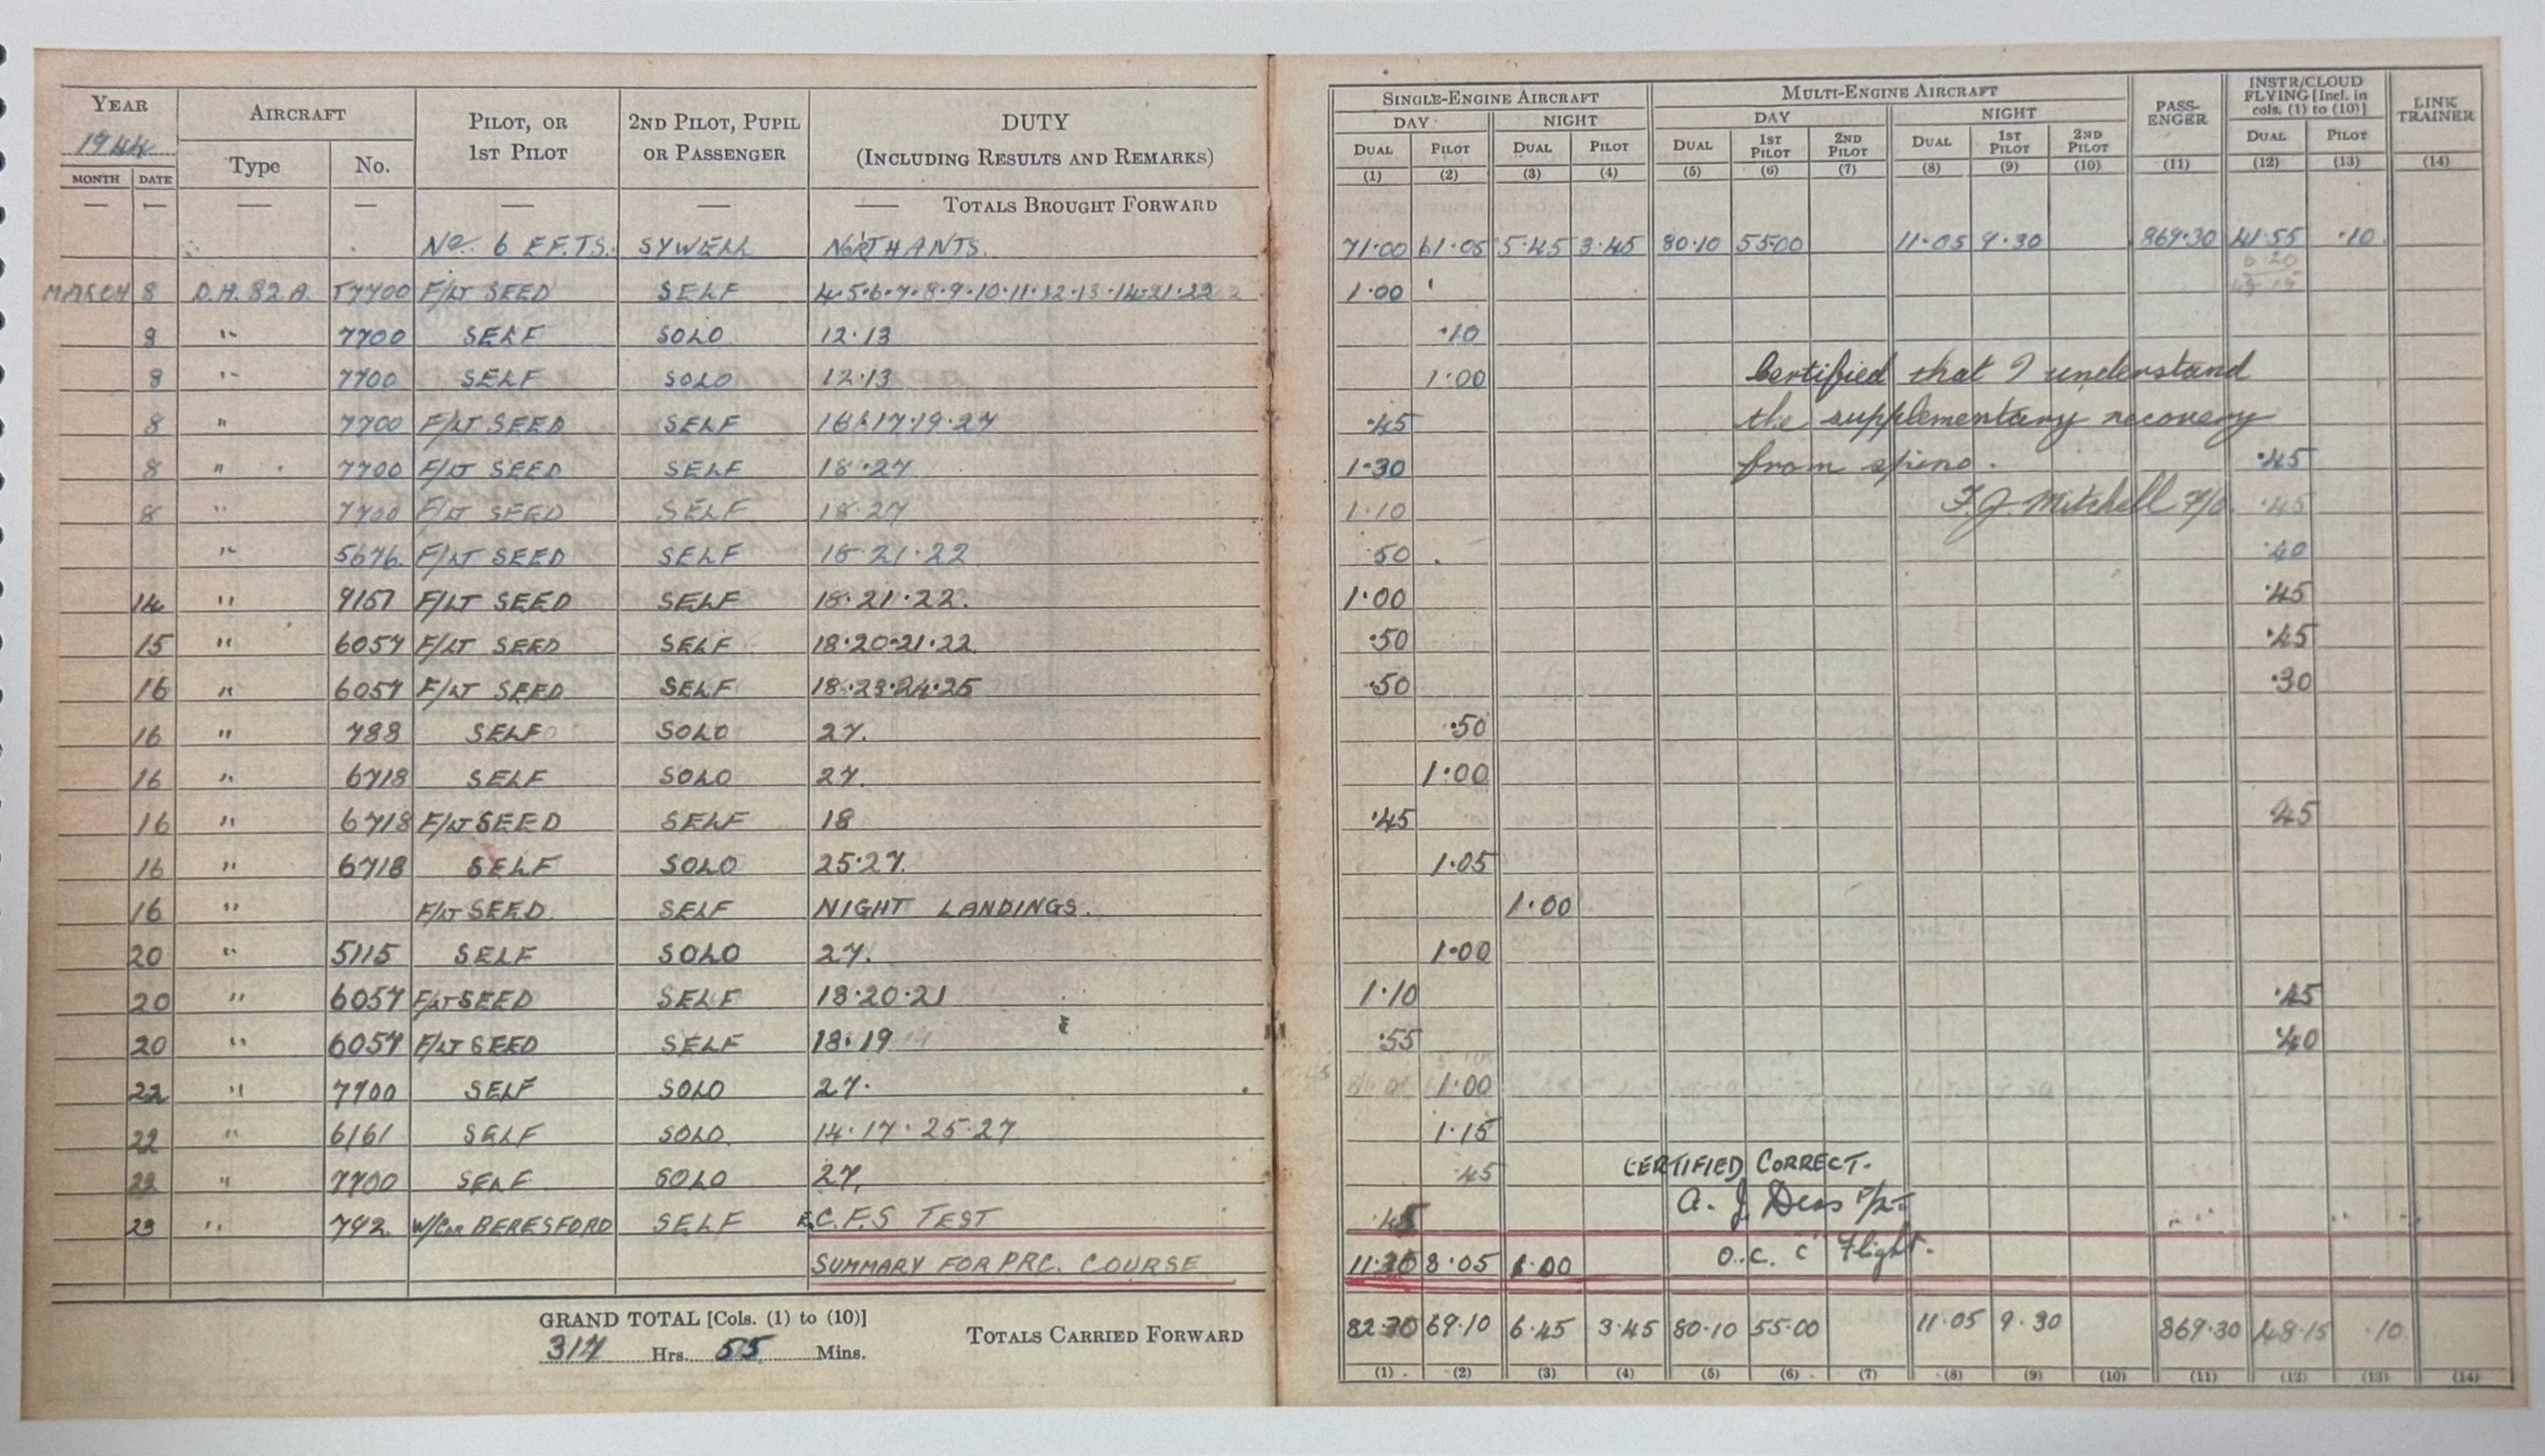 YEAR AIRCRAFT PILOT, OR 1ST PILOT 2ND PILOT, PUPIL OR PASSENGER DUTY (INCLUDING RESULTS AND REMARKS) SINGLE-ENGINE AIRCRAFT MULTI-ENGINE AIRCRAFT PASS-ENGER INSTR/CLOUD FLYING [Incl. in cols. (1) to (10)] LINK TRAINER
1944 DAY NIGHT DAY NIGHT
MONTH DATE Type No. DUAL PILOT DUAL PILOT DUAL 1ST PILOT 2ND PILOT DUAL 1ST PILOT 2ND PILOT DUAL PILOT
(1) (2) (3) (4) (5) (6) (7) (8) (9) (10) (11) (12) (13) (14)
— — — — — — — TOTALS BROUGHT FORWARD
No. 6 E.F.T.S. SYWELL NORTHANTS. 71·00 61·05 5·45 3·45 80·10 55·00 11·05 9·30 869·30 41·55 ·10
MARCH 8 D.H. 82 A. T7700 F/LT SEED SELF 4·5·6·7·8·9·10·11·12·13·14·21·22 1·00
8 " 7700 SELF SOLO 12·13 ·10
8 " 7700 SELF SOLO 12·13 1·00 Certified that I understand
8 " 7700 F/LT SEED SELF 16·17·19·27 ·45 the supplementary recovery
8 " 7700 F/LT SEED SELF 18·27 1·30 from spins. ·45
8 " 7700 F/LT SEED SELF 18·27 1·10 F J Mitchell F/O ·45
" 5676 F/LT SEED SELF 18·21·22 ·50 ·40
14 " 9157 F/LT SEED SELF 18·21·22. 1·00 ·45
15 " 6057 F/LT SEED SELF 18·20·21·22. ·50 ·45
16 " 6057 F/LT SEED SELF 18·23·24·25 ·50 ·30
16 " 788 SELF SOLO 27. ·50
16 " 6718 SELF SOLO 27. 1·00
16 " 6718 F/LT SEED SELF 18 ·45 ·45
16 " 6718 SELF SOLO 25·27. 1·05
16 " F/LT SEED. SELF NIGHT LANDINGS. 1·00
20 " 5115 SELF SOLO 27. 1·00
20 " 6057 F/LT SEED SELF 18·20·21 1·10 ·45
20 " 6057 F/LT SEED SELF 18·19 ·55 ·40
22 " 7700 SELF SOLO 27. 1·00
22 " 6161 SELF SOLO 14·17·25·27 1·15
22 " 7700 SELF SOLO 27. ·45 CERTIFIED CORRECT.
23 " 792 W/Cdr BERESFORD SELF E.C.F.S TEST ·45 A. J.
SUMMARY FOR PRC. COURSE 11·30 8·05 1·00 O.C. 'C' Flight.
GRAND TOTAL [Cols. (1) to (10)]
317 Hrs. 55 Mins. TOTALS CARRIED FORWARD 82·30 69·10 6·45 3·45 80·10 55·00 11·05 9·30 869·30 48·15 ·10
(1) (2) (3) (4) (5) (6) (7) (8) (9) (10) (11) (12) (13) (14)